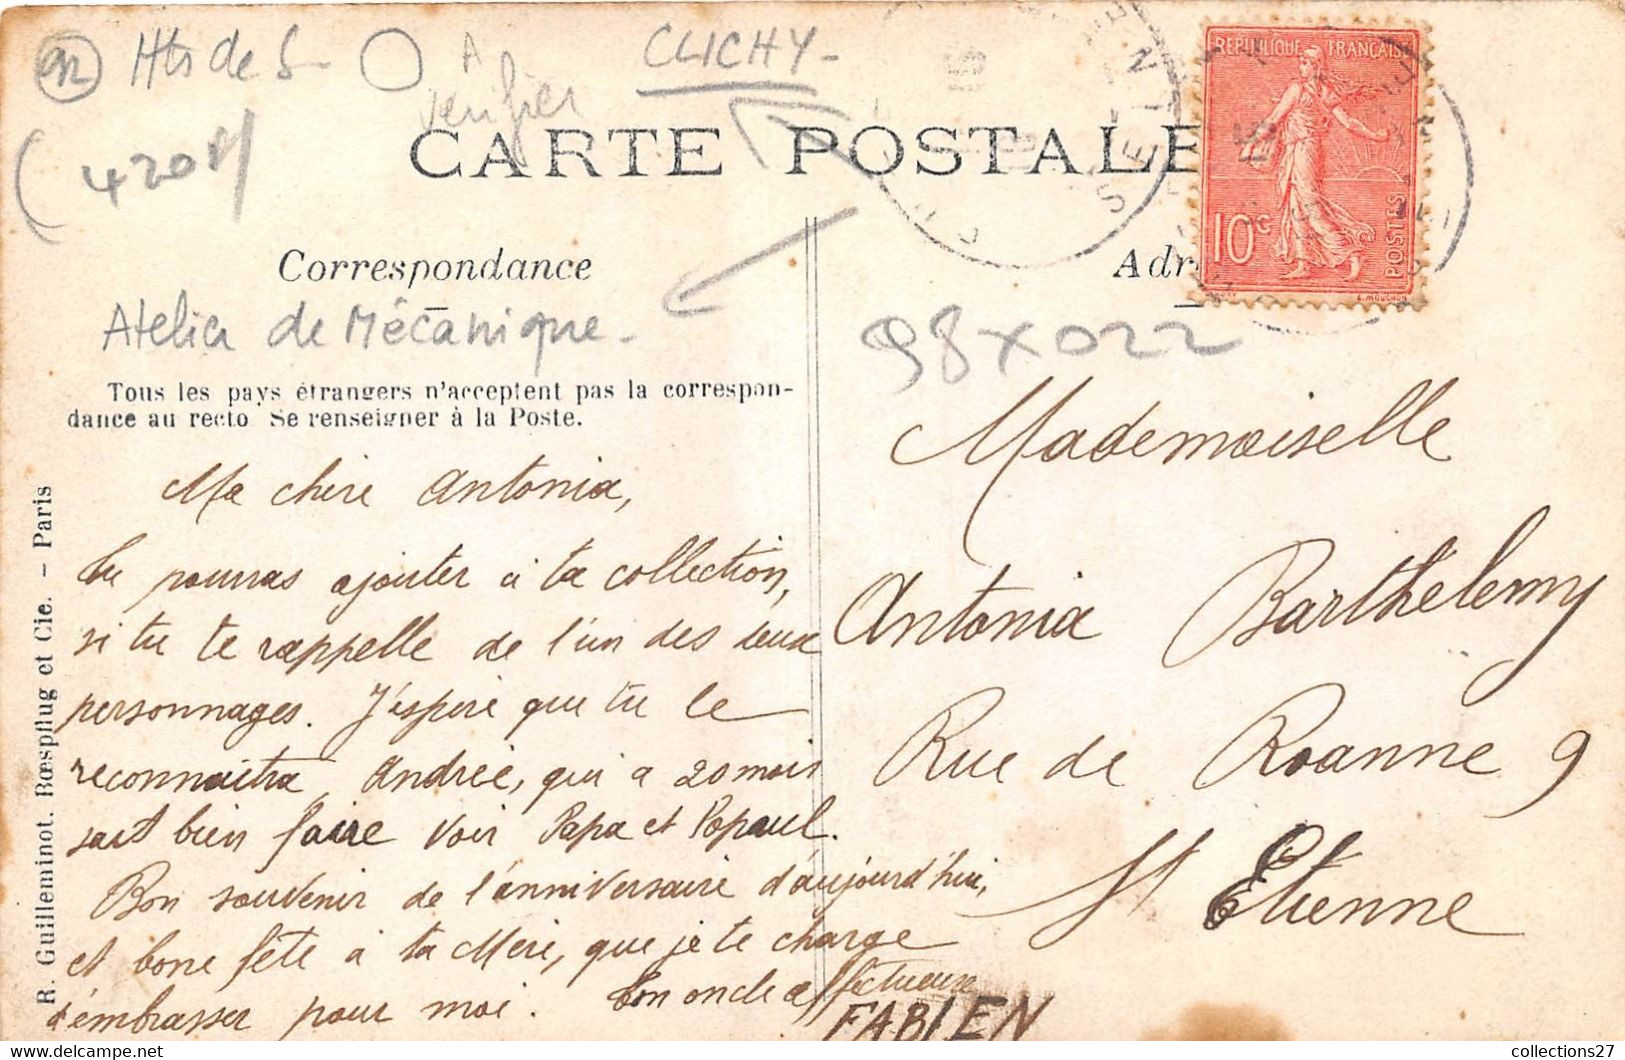 92 Hts de S- A CLICHY-
vérifier
CARTE POSTALE
REPUBLIQUE FRANÇAISE
10c
POSTES
SEINE
Correspondance
Atelier de Mécanique-
Tous les pays étrangers n'acceptent pas la correspon-
dance au recto Se renseigner à la Poste.
R. Guilleminot. Bœspflug et Cie. - Paris
Ma chère Antonia,
tu pourras ajouter à ta collection,
si tu te rappelle de l'un des deux
personnages. J'espère que tu le
reconnaitra, Andrée, qui a 20 mois
sait bien faire voir Papa et Popaul.
Bon souvenir de l'anniversaire d'aujourd'hui,
et bone fête à ta Mère, que je te charge
d'embrasser pour moi. Ton oncle affectueux
FABIEN
98x022
Mademoiselle
Antonia Barthelemy
Rue de Roanne 9
St Etienne
collections27